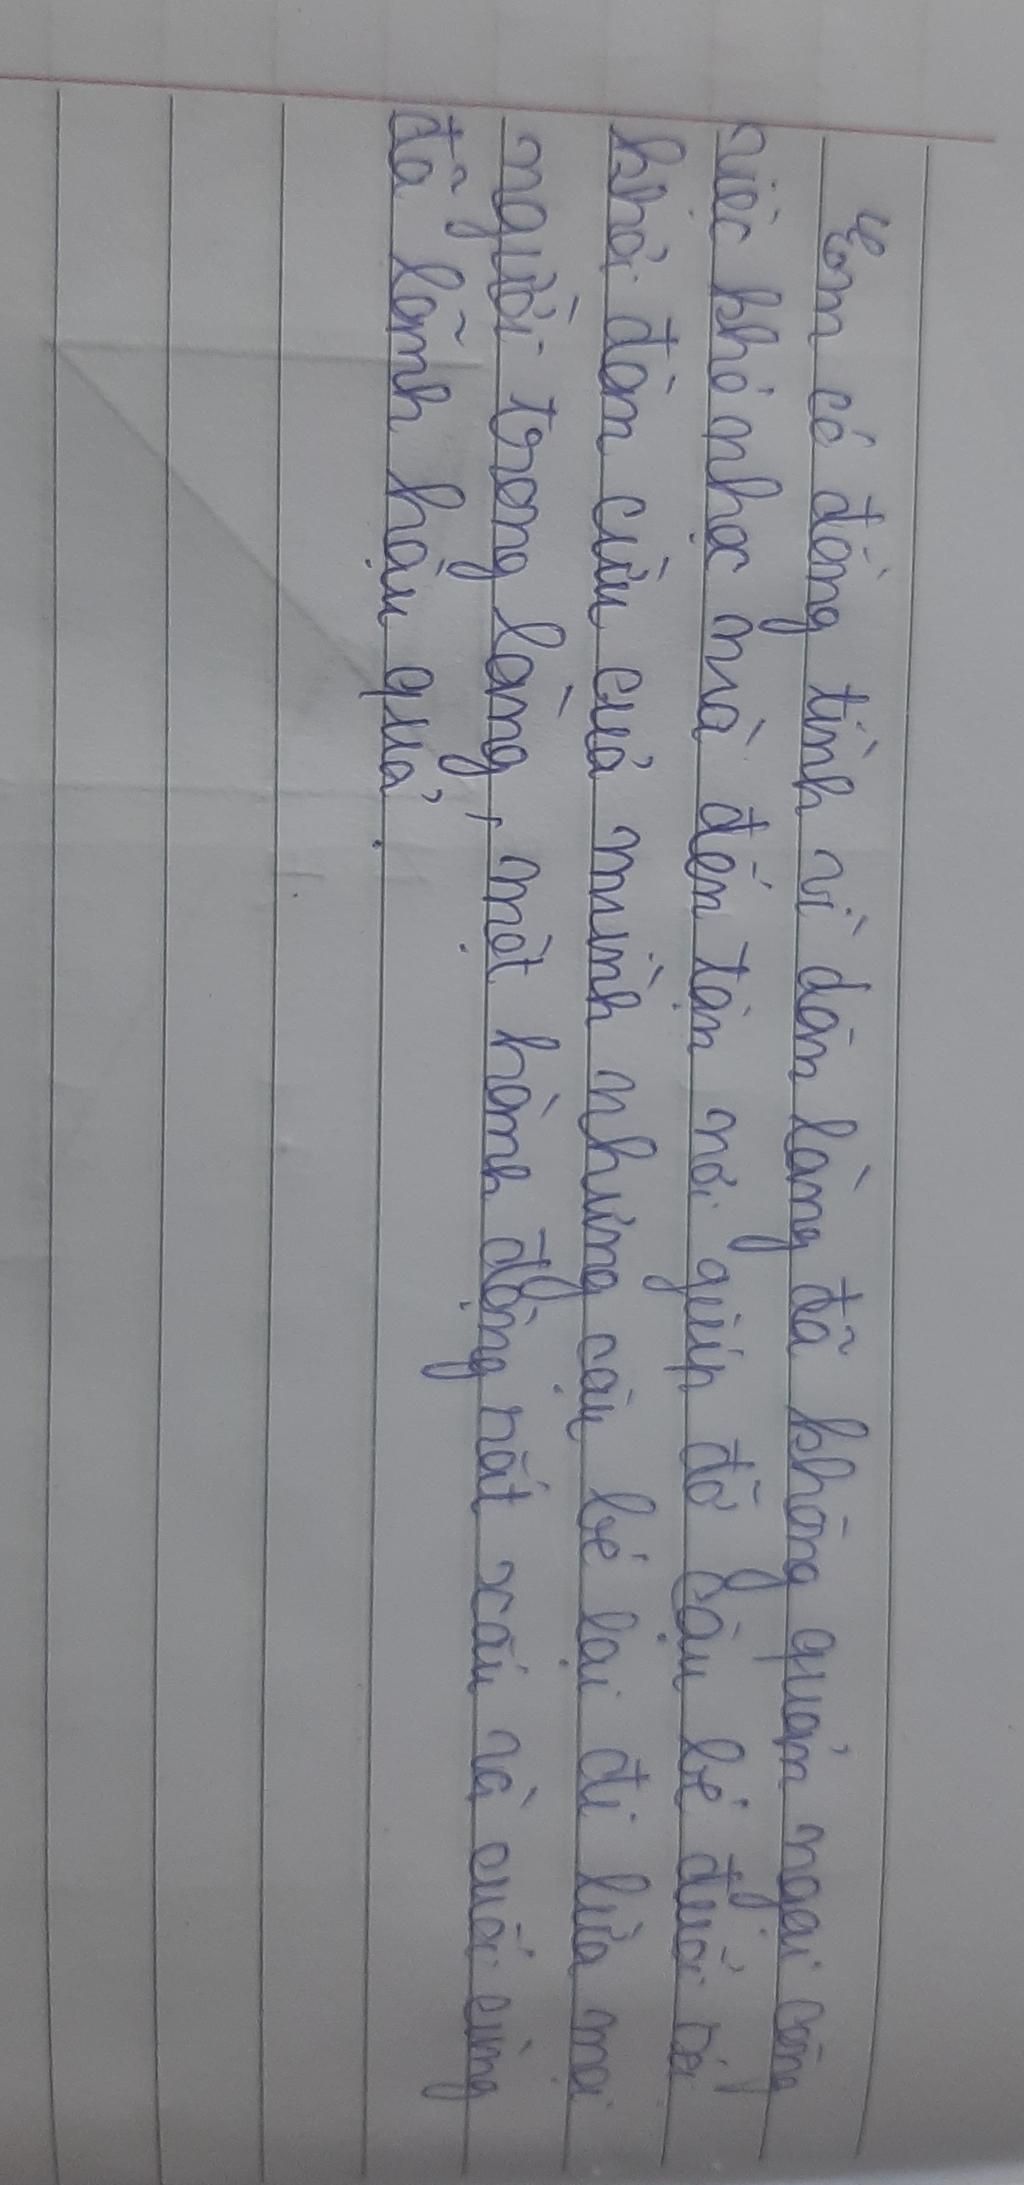 Em có đồng tình vì dân làng đã không quản ngại công
việc khó nhọc mà đến tận nơi giúp đỡ cậu bé đuổi sói
khỏi đàn cừu của mình nhưng cậu bé lại đi lừa mọi
người trong làng, một hành động rất xấu và cuối cùng
đã lãnh hậu quả.